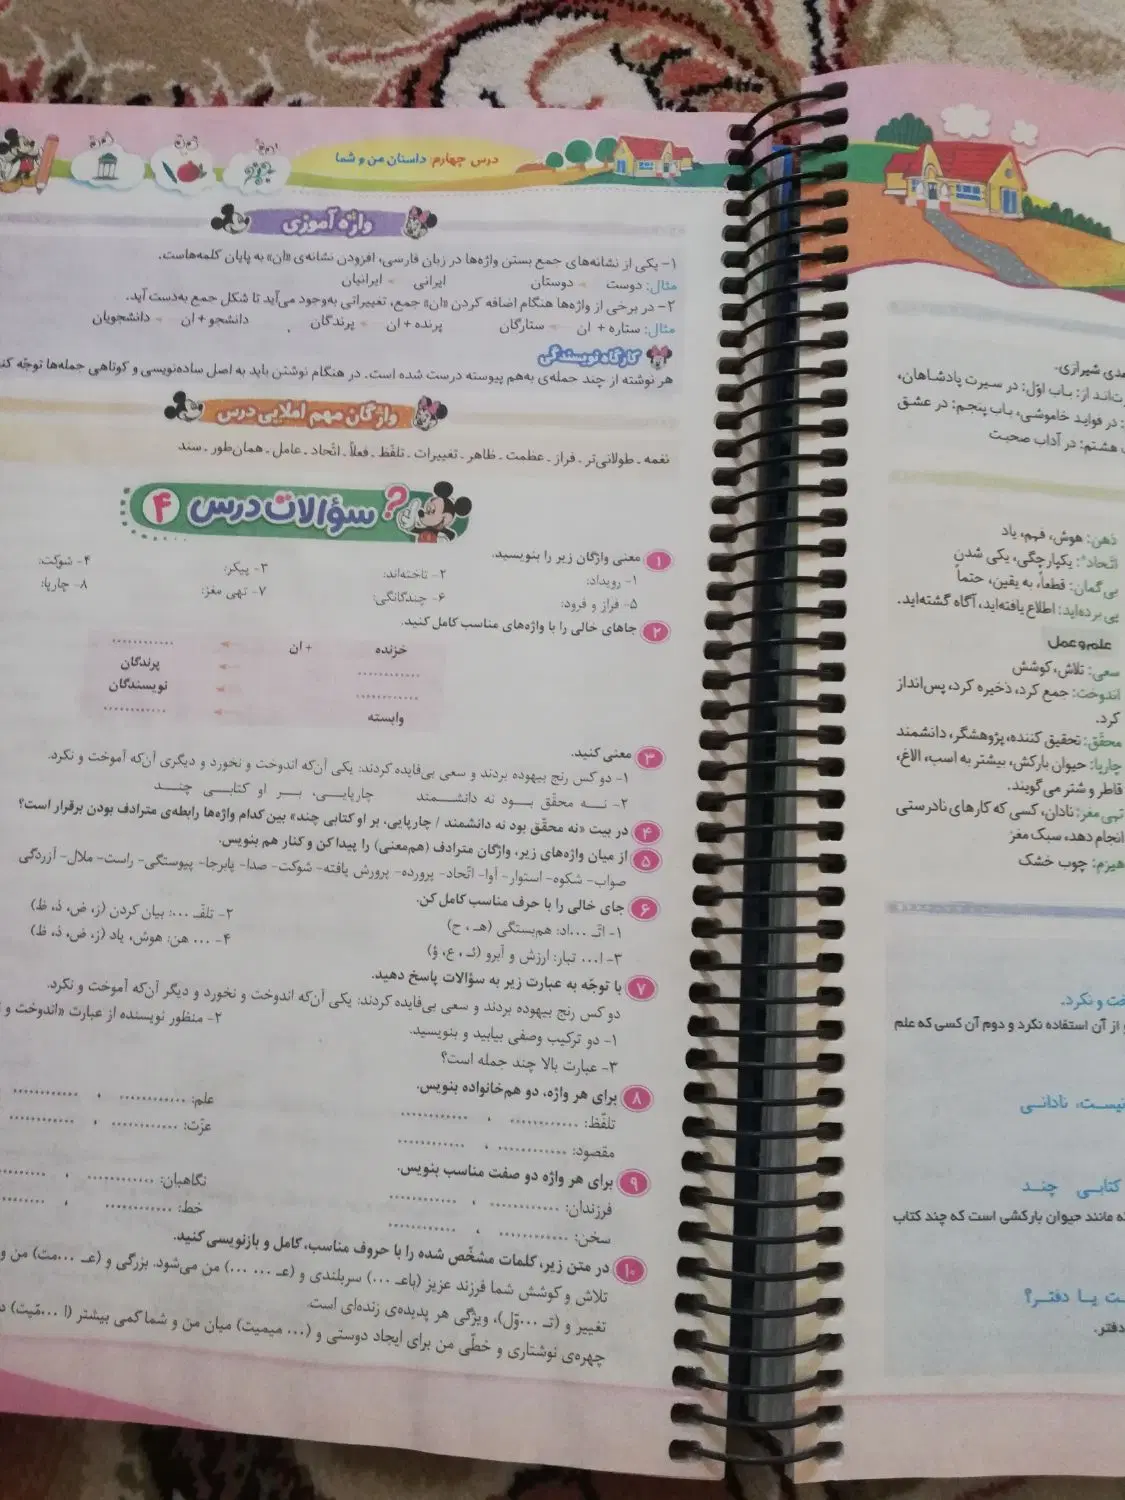 درس چهارم: داستان من و شما
واژه آموزی
۱- یکی از نشانه‌های جمع بستن واژه‌ها در زبان فارسی، افزودن نشانه‌ی «ان» به پایان کلمه‌هاست.
مثال: دوست دوستان ایرانی ایرانیان
۲- در برخی از واژه‌ها هنگام اضافه کردن «ان» جمع، تغییراتی به‌وجود می‌آید تا شکل جمع به‌دست آید.
مثال: ستاره + ان ستارگان پرنده + ان پرندگان دانشجو + ان دانشجویان
کارگاه نویسندگی
هر نوشته از چند جمله‌ی به‌هم پیوسته درست شده است. در هنگام نوشتن باید به اصل ساده‌نویسی و کوتاهی جمله‌ها توجّه کنـ
واژگان مهم املایی درس
نغمه ـ طولانی‌تر ـ فراز ـ عظمت ـ ظاهر ـ تغییرات ـ تلفّظ ـ فعلاً ـ اتّحاد ـ عامل ـ همان‌طور ـ سند
سؤالات درس ۴
۱ معنی واژگان زیر را بنویسید.
۱- رویداد: ۲- تاخته‌اند: ۳- پیکر: ۴- شوکت:
۵- فراز و فرود: ۶- چندگانگی: ۷- تهی مغز: ۸- چارپا:
۲ جاهای خالی را با واژه‌های مناسب کامل کنید.
خزنده + ان ............
............ پرندگان
............ نویسندگان
وابسته ............
۳ معنی کنید.
۱- دو کس رنج بیهوده بردند و سعی بی‌فایده کردند: یکی آن‌که اندوخت و نخورد و دیگری آن‌که آموخت و نکرد.
۲- نـــه محقّق بـــود نه دانشـــمند چارپایـــی، بـــر او کتابـــی چنـــد
۴ در بیت «نه محقّق بود نه دانشمند / چارپایی، بر او کتابی چند» بین کدام واژه‌ها رابطه‌ی مترادف بودن برقرار است؟
۵ از میان واژه‌های زیر، واژگان مترادف (هم‌معنی) را پیدا کن و کنار هم بنویس.
صواب- شکوه- استوار- آوا- اتّحاد- پرورده- پرورش یافته- شوکت- صدا- پابرجا- پیوستگی- راست- ملال- آزردگی
۶ جای خالی را با حرف مناسب کامل کن.
۱- اتّـ ...اد: هم‌بستگی (هـ ، ح) ۲- تلفّـ ...: بیان کردن (ز، ض، ذ، ظ)
۳- ا... تبار: ارزش و آبرو (ئـ ، ع، ؤ) ۴- ... هن: هوش، یاد (ز، ض، ذ، ظ)
۷ با توجّه به عبارت زیر به سؤالات پاسخ دهید.
دو کس رنج بیهوده بردند و سعی بی‌فایده کردند: یکی آن‌که اندوخت و نخورد و دیگر آن‌که آموخت و نکرد.
۱- دو ترکیب وصفی بیابید و بنویسید. ۲- منظور نویسنده از عبارت «اندوخت و
۳- عبارت بالا چند جمله است؟
۸ برای هر واژه، دو هم‌خانواده بنویس.
تلفّظ: ............ ، ............ علم: ............ ، ............
مقصود: ............ ، ............ عزّت: ............ ، ............
۹ برای هر واژه دو صفت مناسب بنویس.
فرزندان: ............ ، ............ نگاهبان: ............ ، ............
سخن: ............ ، ............ خط: ............ ، ............
۱۰ در متن زیر، کلمات مشخّص شده را با حروف مناسب، کامل و بازنویسی کنید.
تلاش و کوشش شما فرزند عزیز (باعـ ...) سربلندی و (عـ ... ...) من می‌شود. بزرگی و (عـ ...مت) من و
تغییر و (تـ ...وّل)، ویژگی هر پدیده‌ی زنده‌ای است.
چهره‌ی نوشتاری و خطّی من برای ایجاد دوستی و (... میمیت) میان من و شما کمی بیشتر (ا ...مّیت)
عدی شیرازی.
رت‌اند از: باب اوّل: در سیرت پادشاهان،
: در فواید خاموشی، باب پنجم: در عشق
هشتم: در آداب صحبت
ذهن: هوش، فهم، یاد
اتّحاد: یکپارچگی، یکی شدن
بی گمان: قطعاً، به یقین، حتماً
پی برده‌اید: اطلاع یافته‌اید، آگاه گشته‌اید.
علم و عمل
سعی: تلاش، کوشش
اندوخت: جمع کرد، ذخیره کرد، پس‌انداز
کرد.
محقّق: تحقیق کننده، پژوهشگر، دانشمند
چارپا: حیوان بارکش، بیشتر به اسب، الاغ،
قاطر و شتر می‌گویند.
تهی مغز: نادان، کسی که کارهای نادرستی
انجام دهد، سبک مغز
هیزم: چوب خشک
خت و نکرد.
و از آن استفاده نکرد و دوم آن کسی که علم
نیست، نادانی
کتابی چند
نه مانند حیوان بارکشی است که چند کتاب
ت یا دفتر؟
دفتر.